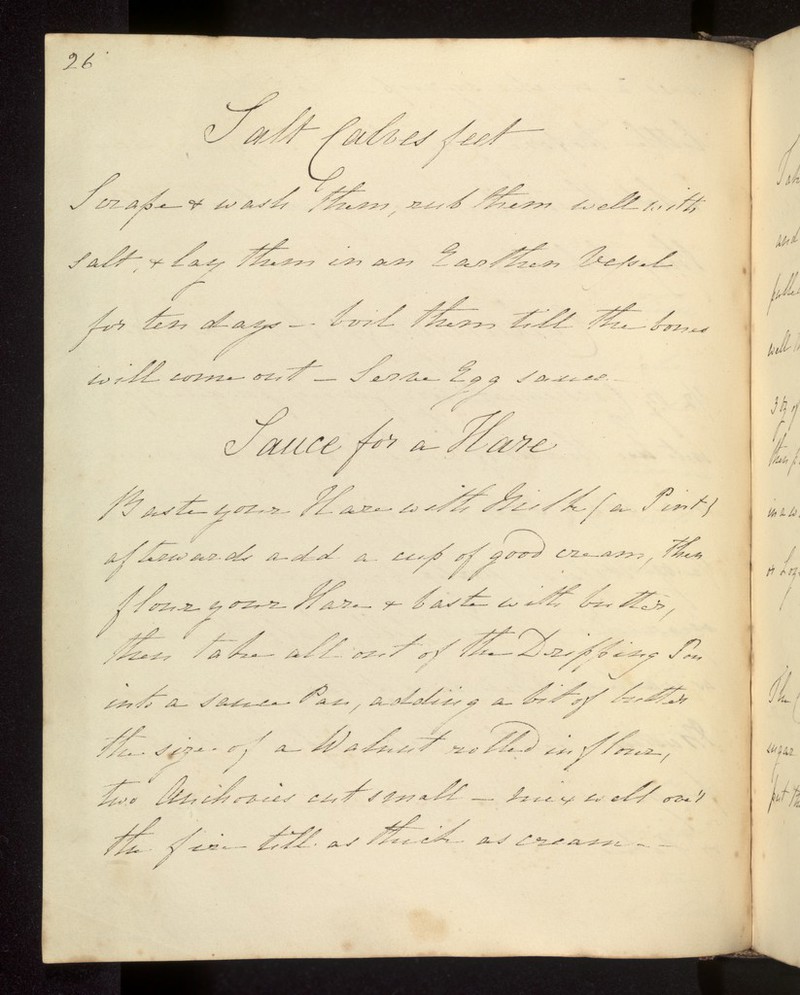 26
Salt Calves feet
Scrape & wash them, rub them well with
salt, & lay them in an Earthen Vessel
for ten days – boil them till the bones
will come out – Serve Egg sauce –
Sauce for a Hare
Baste your Hare with Milk (a Pint)
afterwards add a cup of good cream, then
flour your Hare & baste with butter,
then take all out of the Dripping Pan
into a sauce Pan, adding a bit of butter
the size of a Walnut rolled in flour,
two Anchovies cut small – mix well over
the fire till as thick as cream –
and
well
3 oz of
then
in a
or
The
sugar
put th